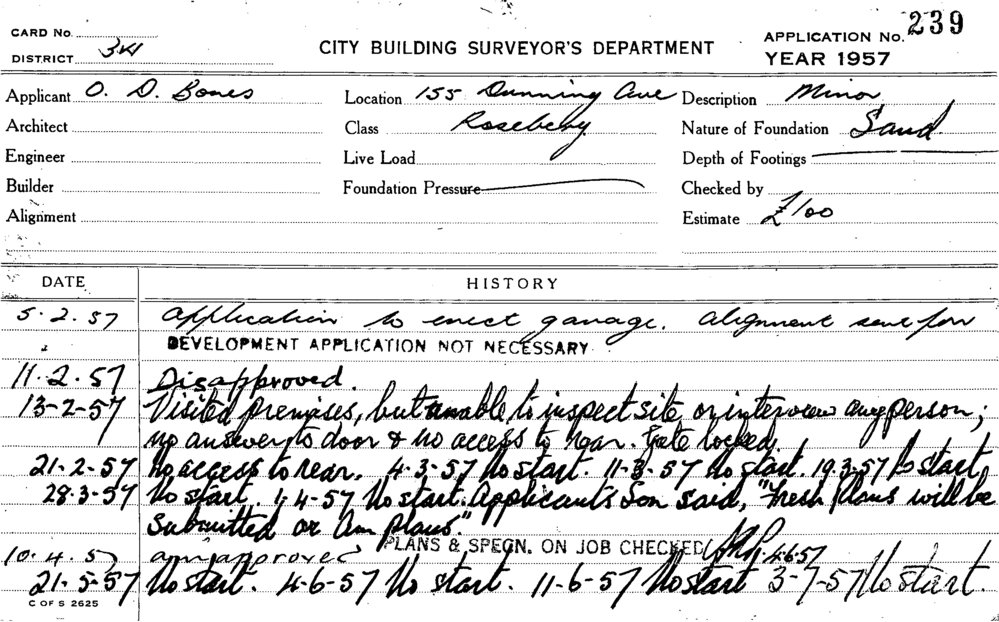 CARD No.
DISTRICT 341
CITY BUILDING SURVEYOR'S DEPARTMENT
APPLICATION No. 239
YEAR 1957
Applicant O. D. Bones
Location 155 Dunning Ave
Description Minor
Architect
Class Rosebery
Nature of Foundation Sand
Engineer
Live Load
Depth of Footings
Builder
Foundation Pressure
Checked by
Alignment
Estimate £100
DATE HISTORY
5.2.57 Application to erect garage. Alignment sent for
DEVELOPMENT APPLICATION NOT NECESSARY
11.2.57 Disapproved.
13-2-57 Visited premises, but unable to inspect site or interview any person;
no answer to door & no access to rear. Gate locked
21-2-57 No access to rear. 4-3-57 No start. 11-3-57 No start. 19.3-57 No start,
28-3-57 No start. 1-4-57 No start. Applicants Son said, "Fresh Plans will be
Submitted or Am Plans"
10.4.57 am approved PLANS & SPECN. ON JOB CHECKED 4-6-57
21-5-57 No start. 4-6-57 No start. 11-6-57 No start 3-7-57 No start.
C OF S 2625